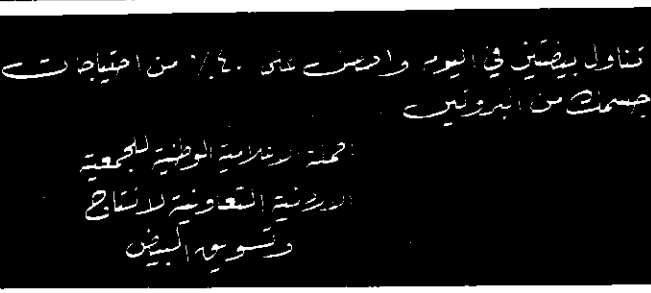 تناول بيضتين في اليوم واحصل على ٤٠٪ من احتياجات
جسمك من البروتين
الحملة الاعلامية الوطنية للجمعية
الاردنية التعاونية لانتاج
وتسويق البيض